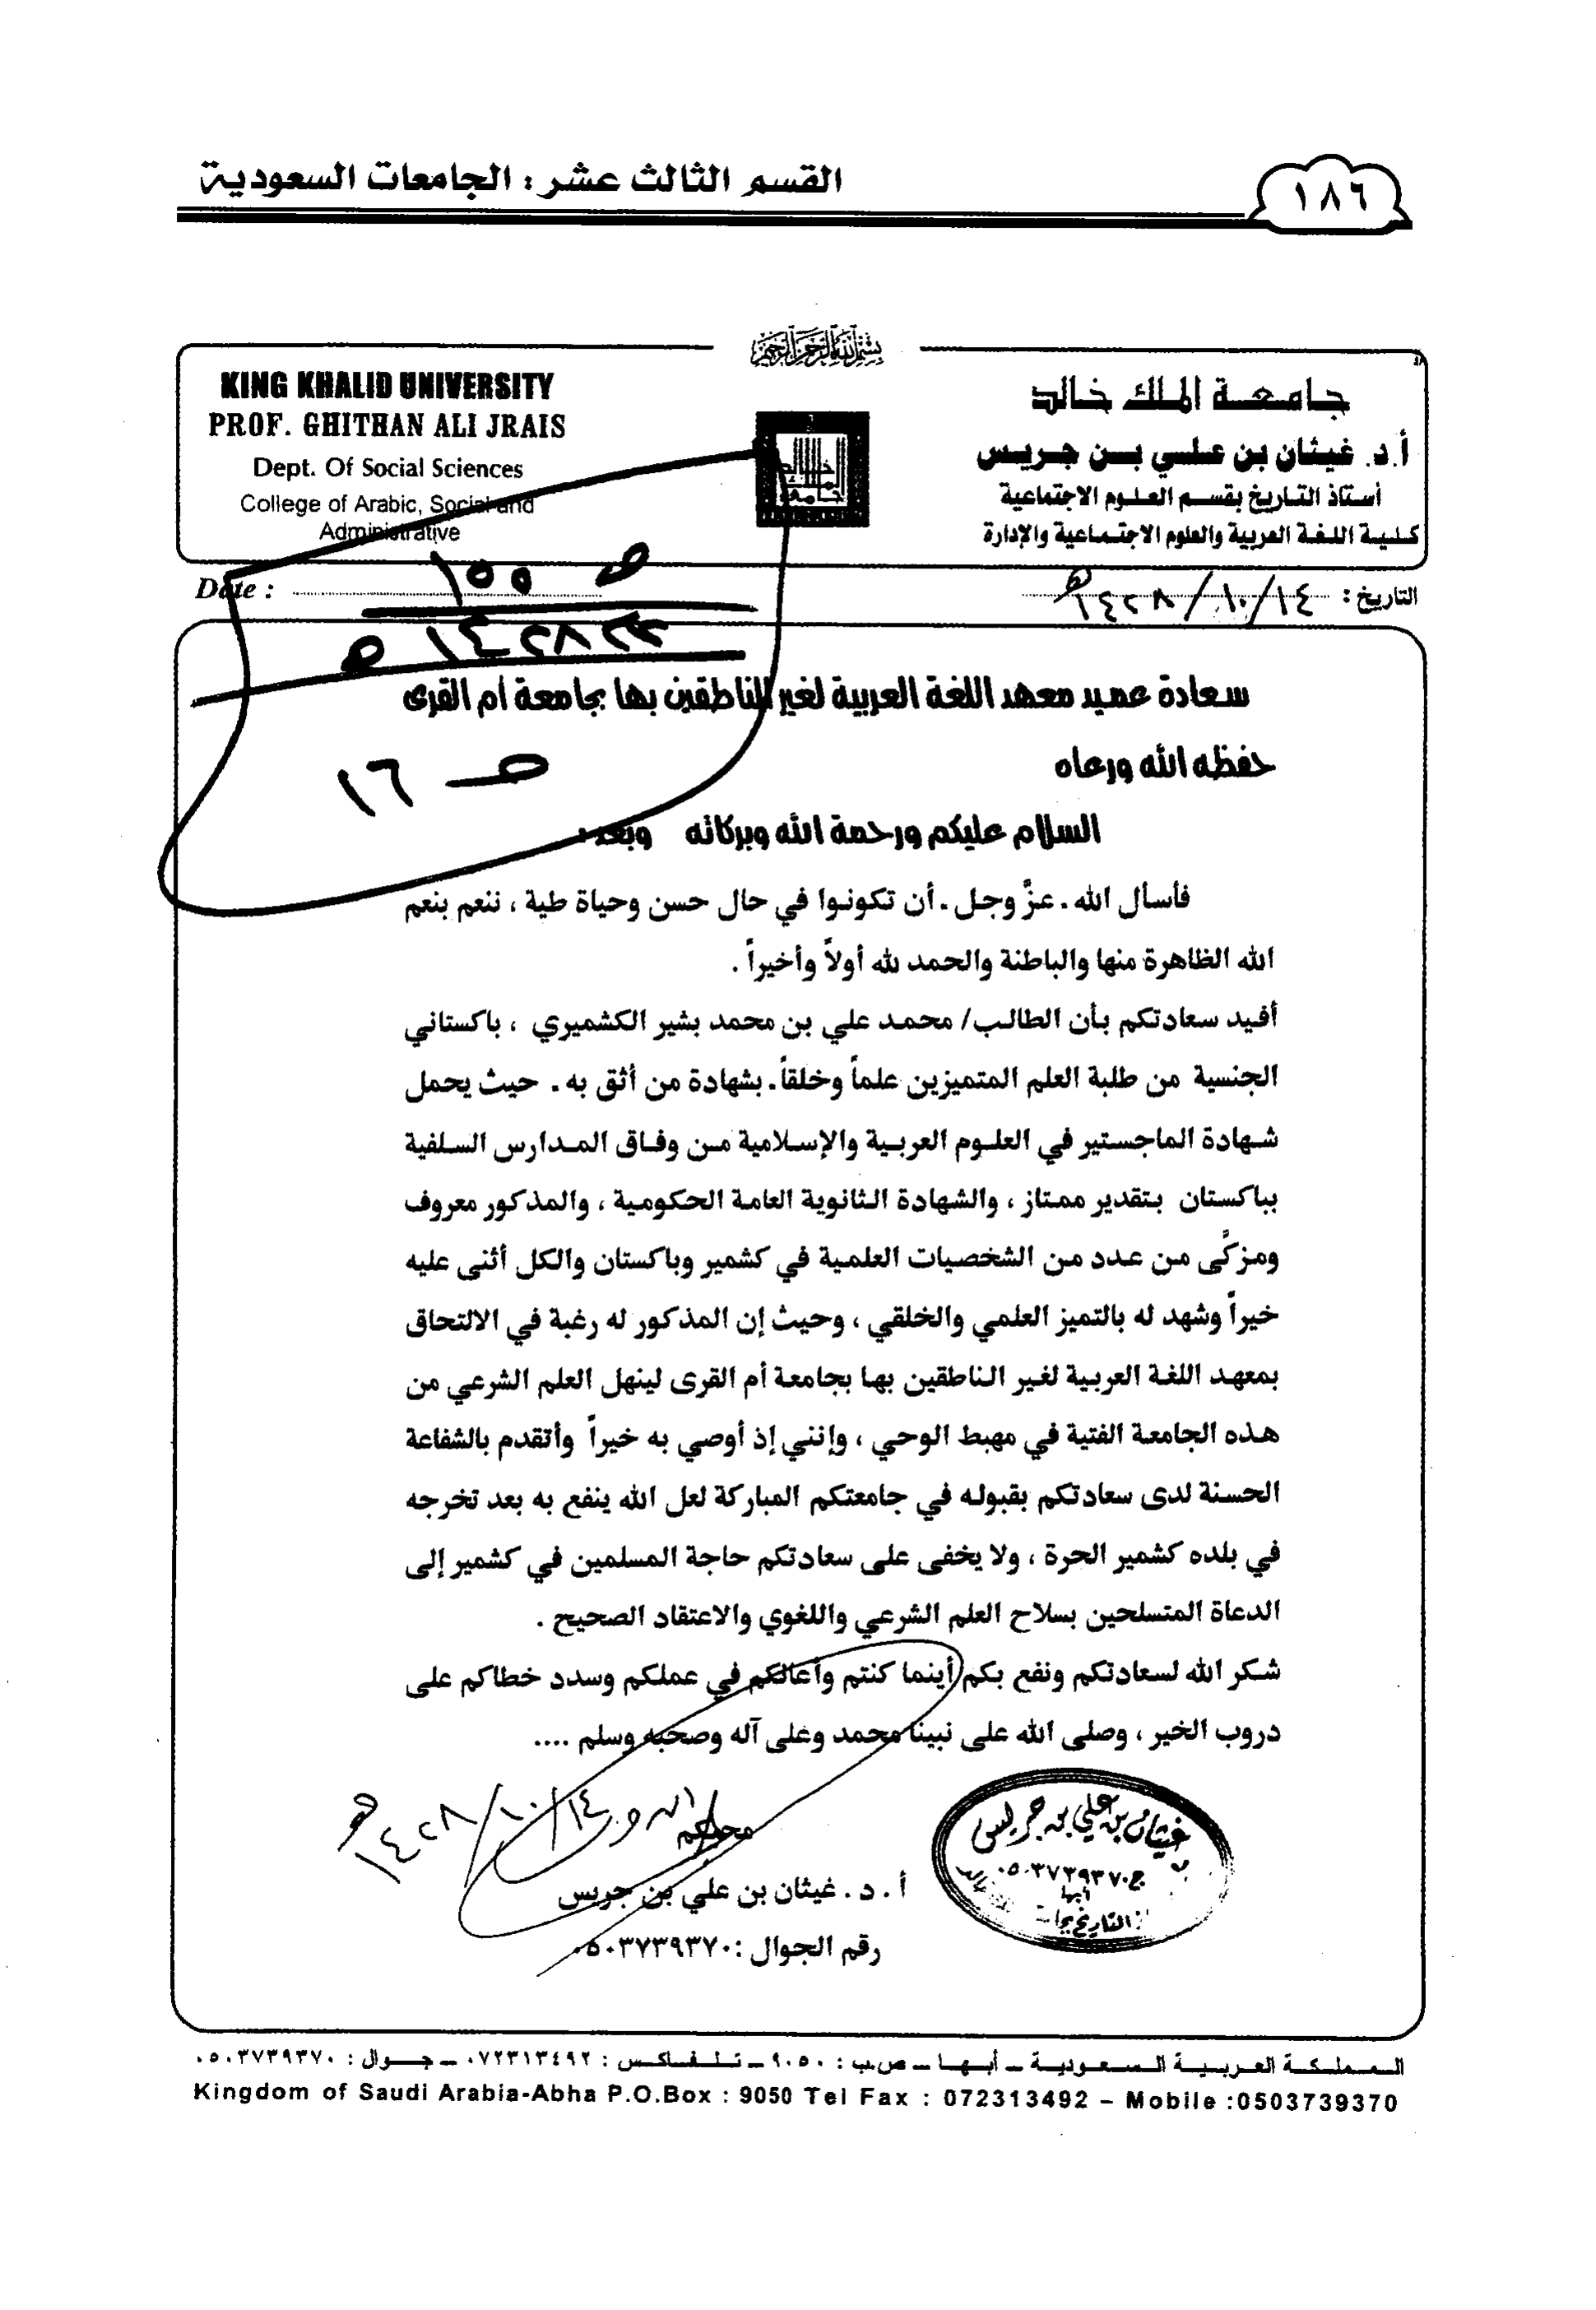 القسم الثالث عشر : الجامعات السعودية
١٨٦
بسم الله الرحمن الرحيم
KING KHALID UNIVERSITY
PROF. GHITHAN ALI JRAIS
Dept. Of Social Sciences
College of Arabic, Social and
Administrative
جامعة الملك خالد
أ.د. غيثان بن علي بن جريس
أستاذ التاريخ بقسم العلوم الاجتماعية
كلية اللغة العربية والعلوم الاجتماعية والإدارة
Date :
التاريخ : ١٤/١٠/١٤٢٨هـ
ص ١٥٥
١٤٢٨ هـ
ص ١٦
سعادة عميد معهد اللغة العربية لغير الناطقين بها بجامعة أم القرى
حفظه الله ورعاه
السلام عليكم ورحمة الله وبركاته وبعد :
فأسأل الله . عزَّ وجل . أن تكونوا في حال حسن وحياة طية ، ننعم بنعم
الله الظاهرة منها والباطنة والحمد لله أولاً وأخيراً .
أفيد سعادتكم بأن الطالب/ محمد علي بن محمد بشير الكشميري ، باكستاني
الجنسية من طلبة العلم المتميزين علماً وخلقاً . بشهادة من أثق به . حيث يحمل
شهادة الماجستير في العلوم العربية والإسلامية من وفاق المدارس السلفية
بباكستان بتقدير ممتاز ، والشهادة الثانوية العامة الحكومية ، والمذكور معروف
ومزكًى من عدد من الشخصيات العلمية في كشمير وباكستان والكل أثنى عليه
خيراً وشهد له بالتميز العلمي والخلقي ، وحيث إن المذكور له رغبة في الالتحاق
بمعهد اللغة العربية لغير الناطقين بها بجامعة أم القرى لينهل العلم الشرعي من
هذه الجامعة الفتية في مهبط الوحي ، وإنني إذ أوصي به خيراً وأتقدم بالشفاعة
الحسنة لدى سعادتكم بقبوله في جامعتكم المباركة لعل الله ينفع به بعد تخرجه
في بلده كشمير الحرة ، ولا يخفى على سعادتكم حاجة المسلمين في كشمير إلى
الدعاة المتسلحين بسلاح العلم الشرعي واللغوي والاعتقاد الصحيح .
شكر الله لسعادتكم ونفع بكم أينما كنتم وأعانكم في عملكم وسدد خطاكم على
دروب الخير ، وصلى الله على نبينا محمد وعلى آله وصحبه وسلم ....
١٤/١٠/١٤٢٨هـ
محبكم
أ . د . غيثان بن علي بن جريس
رقم الجوال : ٠٥٠٣٧٣٩٣٧٠
غيثان بن علي بن جريس
ج ٠٥٠٣٧٣٩٣٧٠
أبها
المملكة العربية السعودية – أبها – ص.ب : ٩٠٥٠ – تلفاكس : ٠٧٢٣١٣٤٩٢ – جوال : ٠٥٠٣٧٣٩٣٧٠
Kingdom of Saudi Arabia-Abha P.O.Box : 9050 Tel Fax : 072313492 – Mobile :0503739370